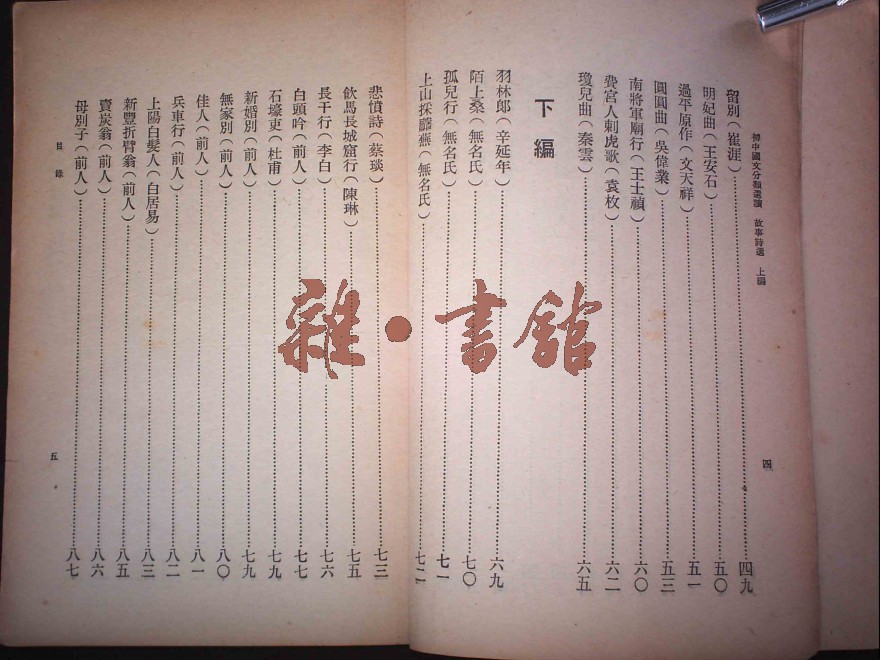 初中國文分類選讀 故事詩選 上編
四
留別(崔涯)……四九
明妃曲(王安石)……五〇
過平原作(文天祥)……五一
圓圓曲(吳偉業)……五三
南將軍廟行(王士禎)……六〇
費宮人刺虎歌(袁枚)……六二
瓊兒曲(秦雲)……六五
下編
羽林郎(辛延年)……六九
陌上桑(無名氏)……七〇
孤兒行(無名氏)……七一
上山採蘼蕪(無名氏)……七二
悲憤詩(蔡琰)……七三
飲馬長城窟行(陳琳)……七五
長干行(李白)……七六
白頭吟(前人)……七七
石壕吏(杜甫)……七九
新婚別(前人)……七九
無家別(前人)……八〇
佳人(前人)……八一
兵車行(前人)……八二
上陽白髮人(白居易)……八三
新豐折臂翁(前人)……八五
賣炭翁(前人)……八六
母別子(前人)……八七
目錄
五
雜·書館